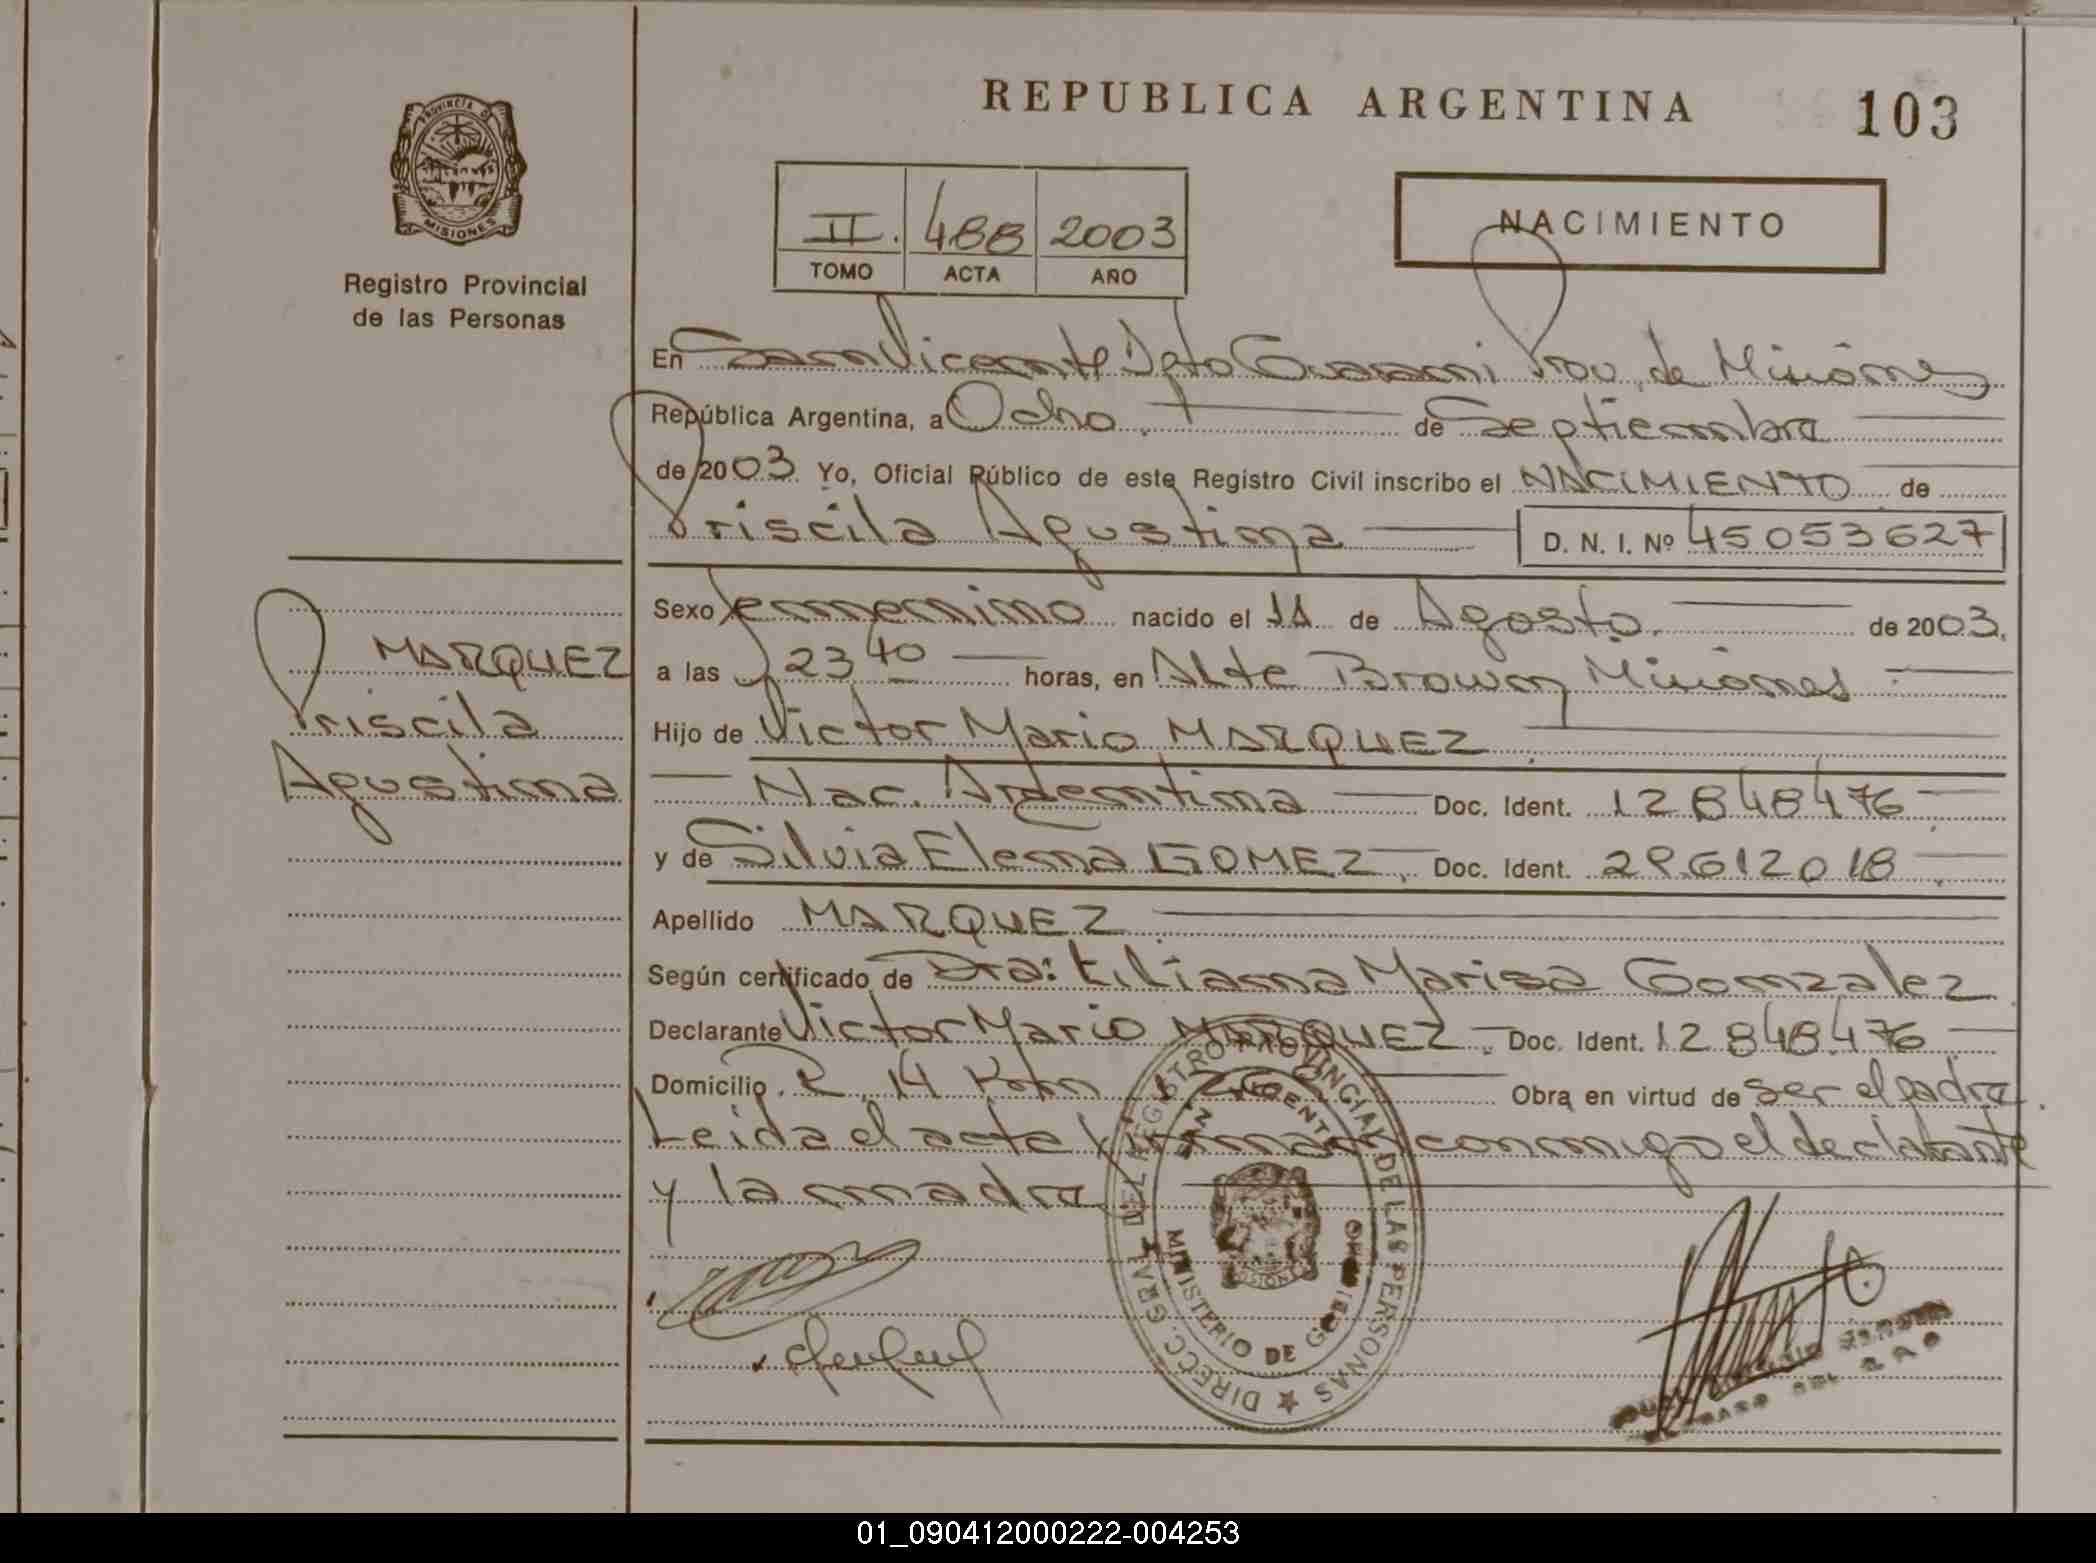 REPUBLICA ARGENTINA
103
PROVINCIA DE
MISIONES
Registro Provincial
de las Personas
II. 488 2003
TOMO ACTA AÑO
NACIMIENTO
En San Vicente Dpto Guarani Prov. de Misiones
República Argentina, a Ocho de Septiembre
de 2003 Yo, Oficial Público de este Registro Civil inscribo el NACIMIENTO de
Priscila Agustina D. N. I. Nº 45053627
Sexo femenino nacido el 11 de Agosto de 2003.
a las 23 40 horas, en Alte Brown Misiones
Hijo de Victor Mario MARQUEZ
Nac. Argentina Doc. Ident. 12848476
y de Silvia Elena GOMEZ Doc. Ident. 29612018
Apellido MARQUEZ
Según certificado de Dra: Liliana Marisa Gonzalez
Declarante Victor Mario MARQUEZ Doc. Ident. 12848476
Domicilio. R 14 Km Obra en virtud de ser el padre.
Leida el acta firman conmigo el declarante
y la madre
MARQUEZ
Priscila
Agustina
DIRECC. GRAL. DEL REGISTRO PROVINCIAL DE LAS PERSONAS
MINISTERIO DE GOBIERNO
01_090412000222-004253